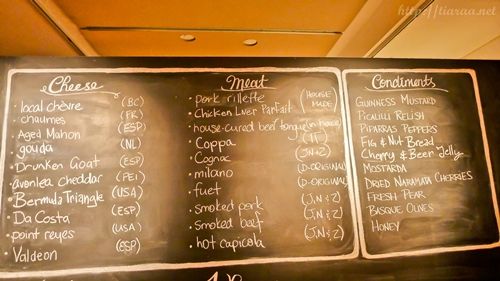 http://tiaraa.net
Cheese
local chèvre (BC)
chaumes (FR)
Aged Mahon (ESP)
gouda (NL)
Drunken Goat (ESP)
avonlea cheddar (PEI)
Bermuda Triangle (USA)
Da Costa (ESP)
point reyes (USA)
Valdeon (ESP)
Meat
pork rillette (HOUSE MADE)
Chicken Liver Parfait
house-cured beef tongue (in house)
Coppa (IT)
Cognac (JN&Z)
milano (D-ORIGINAL)
fuet (D-ORIGINAL)
smoked pork (J,N&Z)
smoked beef (J,N&Z)
hot capicola (J,N&Z)
Condiments
GUINNESS MUSTARD
PICALILLI RELISH
PIPARRAS PEPPERS
FIG & NUT BREAD
Cherry & Beer Jelly
MOSTARDA
DRIED NARAMATA CHERRIES
FRESH PEAR
BASQUE OLIVES
HONEY